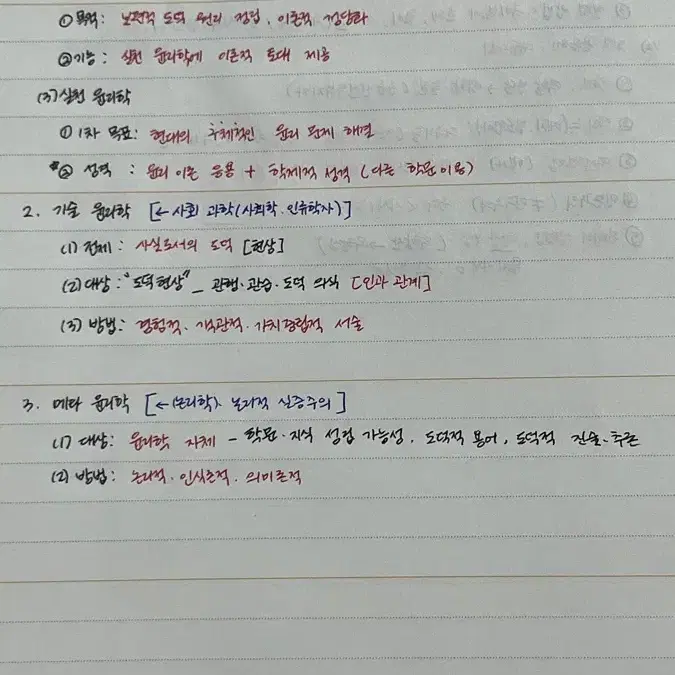 ①목적: 보편적 도덕 원리 정립, 이론적 정당화
②기능: 실천 윤리학에 이론적 토대 제공
(3)실천 윤리학
①1차 목표: 현대의 구체적인 윤리 문제 해결
*② 성격: 윤리 이론 응용 + 학제적 성격 (다른 학문 이용)
2. 기술 윤리학 [←사회 과학(사회학·인류학자)]
(1) 전제: 사실로서의 도덕 [현상]
(2)대상: "도덕 현상" _ 관행·관습·도덕 의식 [인과 관계]
(3) 방법: 경험적·객관적·가치중립적 서술
3. 메타 윤리학 [←(논리학)·논리적 실증주의]
(1) 대상: 윤리학 자체 - 학문·지식 성립 가능성, 도덕적 용어, 도덕적 진술·추론
(2) 방법: 논리적·인식론적·의미론적